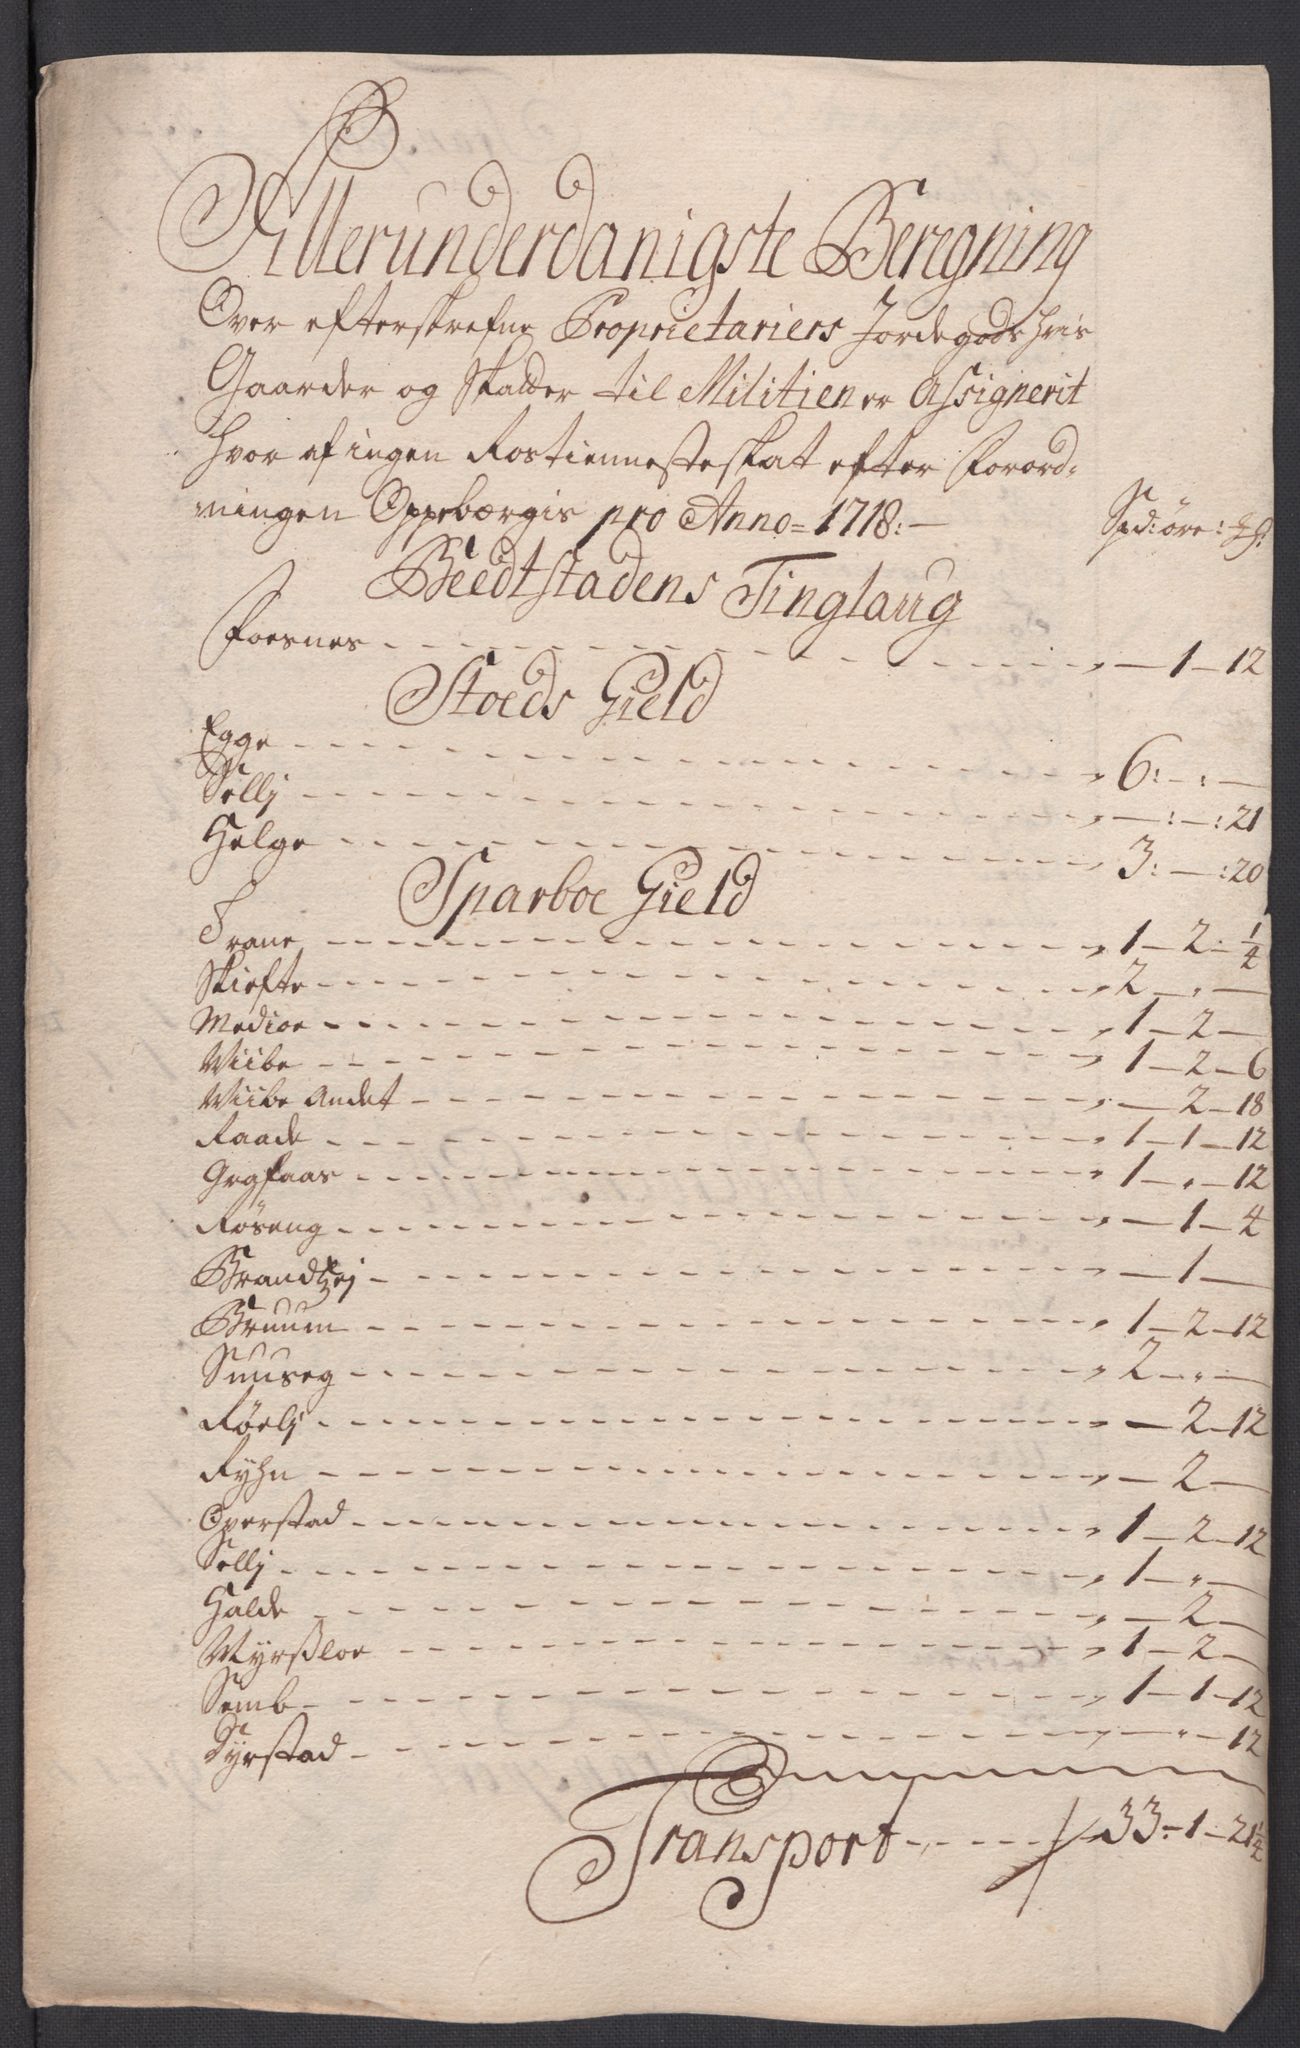 Allerunderdanigste Beregning
Over efterskrefne Proprietariers Jordegods hvis
Gaarder og Skatter til Militien er Assignerit
hvor af ingen Rostienneste skat efter Forord-
ningen Oppebærgis pro Anno = 1718:—
Spd: öre: ₰:
Beedtstadens Tinglaug
Foesnes - - - — 1 — 12
Stoeds Gield
Egge - - - 6: — : —
Sellj - - - — : — : 21
Helge - - - 3: — : 20
Sparboe Gield
Trane - - - 1 — 2 : 1/4
Skiefte - - - 2 — „ —
Medioe - - - 1 — 2 —
Wiibe - - - 1 — 2 — 6
Wiibe Andet - - - — 2 — 18
Raade - - - 1 — 1 — 12
Grafaas - - - 1 — „ — 12
Röseng - - - — 1 — 4
Brandtzej - - - — 1 —
Bruum - - - 1 — 2 — 12
Suuseg - - - 2 — „ —
Röelj - - - — 2 — 12
Ryhn - - - — 2 —
Operstad - - - 1 — 2 — 12
Sellj - - - 1 — „ —
Halde - - - — 2 —
Myrßloe - - - 1 — 2 —
Semb - - - 1 — 1 — 12
Dyrstad - - - — „ — 12
Transport - - - 33 — 1 — 21 1/4